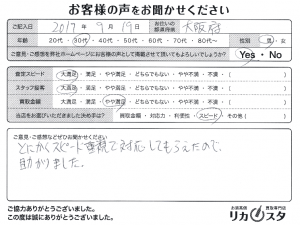 お客様の声をお聞かせください
ご記入日 2017年9月19日 お住いの都道府県 大阪府
年齢 20代・30代・40代・50代・60代・70代・80代〜 性別 男・女
ご意見・ご感想を弊社ホームページにお客様の声として掲載させて頂いてもよろしいでしょうか? Yes・No
査定スピード 大満足・満足・やや満足・どちらでもない・やや不満・不満・( )
スタッフ接客 大満足・満足・やや満足・どちらでもない・やや不満・不満・( )
買取金額 大満足・満足・やや満足・どちらでもない・やや不満・不満・( )
当店をお選びいただきました決め手は? 買取金額・対応力・利便性・スピード・その他( )
ご意見・ご感想などぜひお聞かせください
とにかくスピード重視で対応してもらえたので、
助かりました。
ご協力ありがとうございました。
この度は誠にありがとうございました。
お酒高価買取専門店
リカスタ